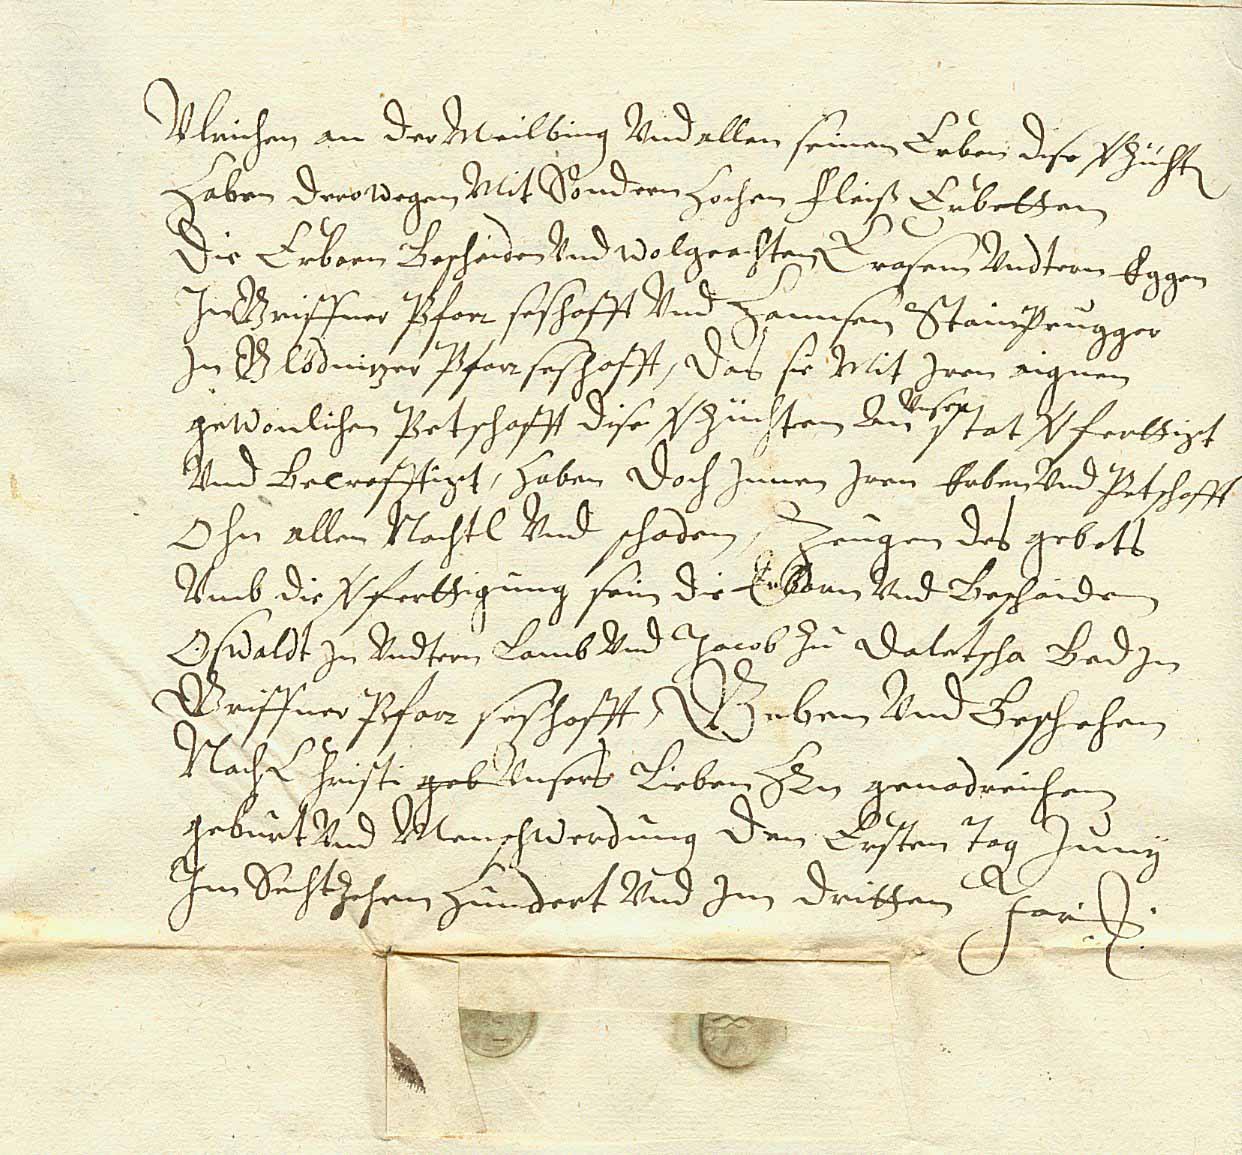 Vlrichen an der Meilbing Vnd allen seinen Erben dise Vzücht
Haben derowegen Mit Sondern Hochen Fleiß Erbetten
Die Erbarn Beschaiden Vnd wolgeachten Erasem Vndtern Eggen
In Griffner Pfarr seshafft Vnd Hannsen StainPrugger
In Glödnizer Pfarr seshafft, das sie Mit Iren aignen
gewonlichen Petschafft dise Vzüchten an Vnser stat Vferttigt
Vnd Becrefftigt, Haben doch Innen Iren Erben Vnd Petschafft
Ohn allen Nachtl Vnd schaden, Zeugen des gebets
Vmb die Vferttigung sein die Erbarn Vnd Beschaiden
Oswaldt In Vndtern Lamb Vnd Jacob Zu Daletscha Bed In
Griffner Pfarr seshafft, Geben Vnd Beschehen
Nach Christi geb Vnsers Lieben Hrn genadreichen
geburt Vnd Menschwerdung den Ersten Tag Juny
Im Sechtzehen Hundert Vnd Im dritten Jar